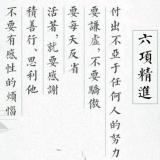 六項精進
付出不亞于任何人的努力
要謙虛，不要驕傲
要每天反省
活著，就要感謝
積善行、思利他
不要有感性的煩惱